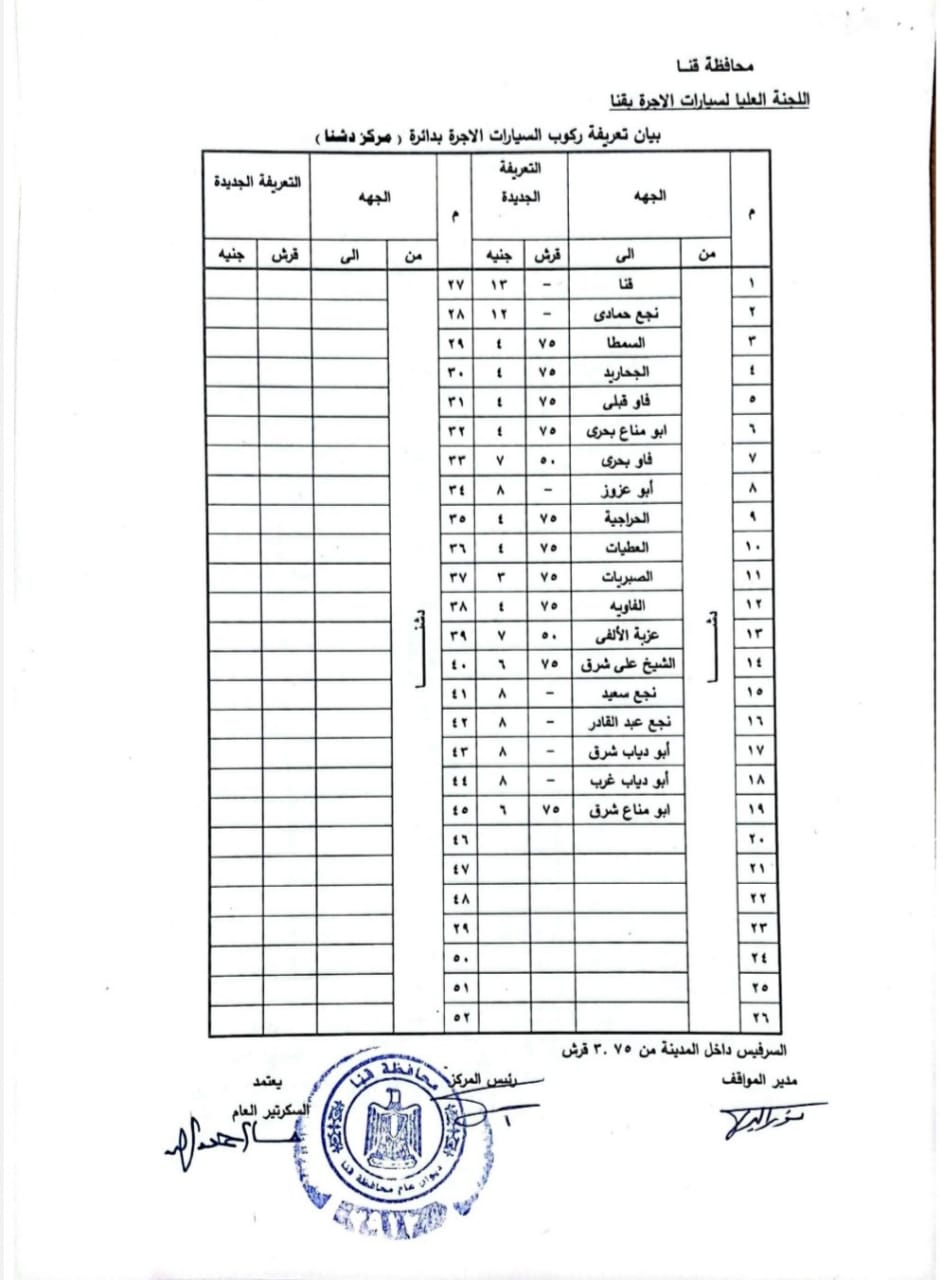 محافظة قنا
اللجنة العليا لسيارات الاجرة بقنا
بيان تعريفة ركوب السيارات الاجرة بدائرة ( مركز دشنا )
م الجهه التعريفة الجديدة م الجهه التعريفة الجديدة
من الى قرش جنيه من الى قرش جنيه
دشنـــــا دشنـــــا
١ قنا – ١٣ ٢٧
٢ نجع حمادى – ١٢ ٢٨
٣ السمطا ٧٥ ٤ ٢٩
٤ الجحاريد ٧٥ ٤ ٣٠
٥ فاو قبلى ٧٥ ٤ ٣١
٦ ابو مناع بحرى ٧٥ ٤ ٣٢
٧ فاو بحرى ٥٠ ٧ ٣٣
٨ أبو عزوز – ٨ ٣٤
٩ الحراجية ٧٥ ٤ ٣٥
١٠ العطيات ٧٥ ٤ ٣٦
١١ الصبريات ٧٥ ٣ ٣٧
١٢ الفاويه ٧٥ ٤ ٣٨
١٣ عزبة الألفى ٥٠ ٧ ٣٩
١٤ الشيخ على شرق ٧٥ ٦ ٤٠
١٥ نجع سعيد – ٨ ٤١
١٦ نجع عبد القادر – ٨ ٤٢
١٧ أبو دياب شرق – ٨ ٤٣
١٨ أبو دياب غرب – ٨ ٤٤
١٩ ابو مناع شرق ٧٥ ٦ ٤٥
٢٠ ٤٦
٢١ ٤٧
٢٢ ٤٨
٢٣ ٢٩
٢٤ ٥٠
٢٥ ٥١
٢٦ ٥٢
السرفيس داخل المدينة من ٣.٧٥ قرش
مدير المواقف رئيس المركز يعتمد
السكرتير العام
محافظة قنا
ديوان عام محافظة قنا